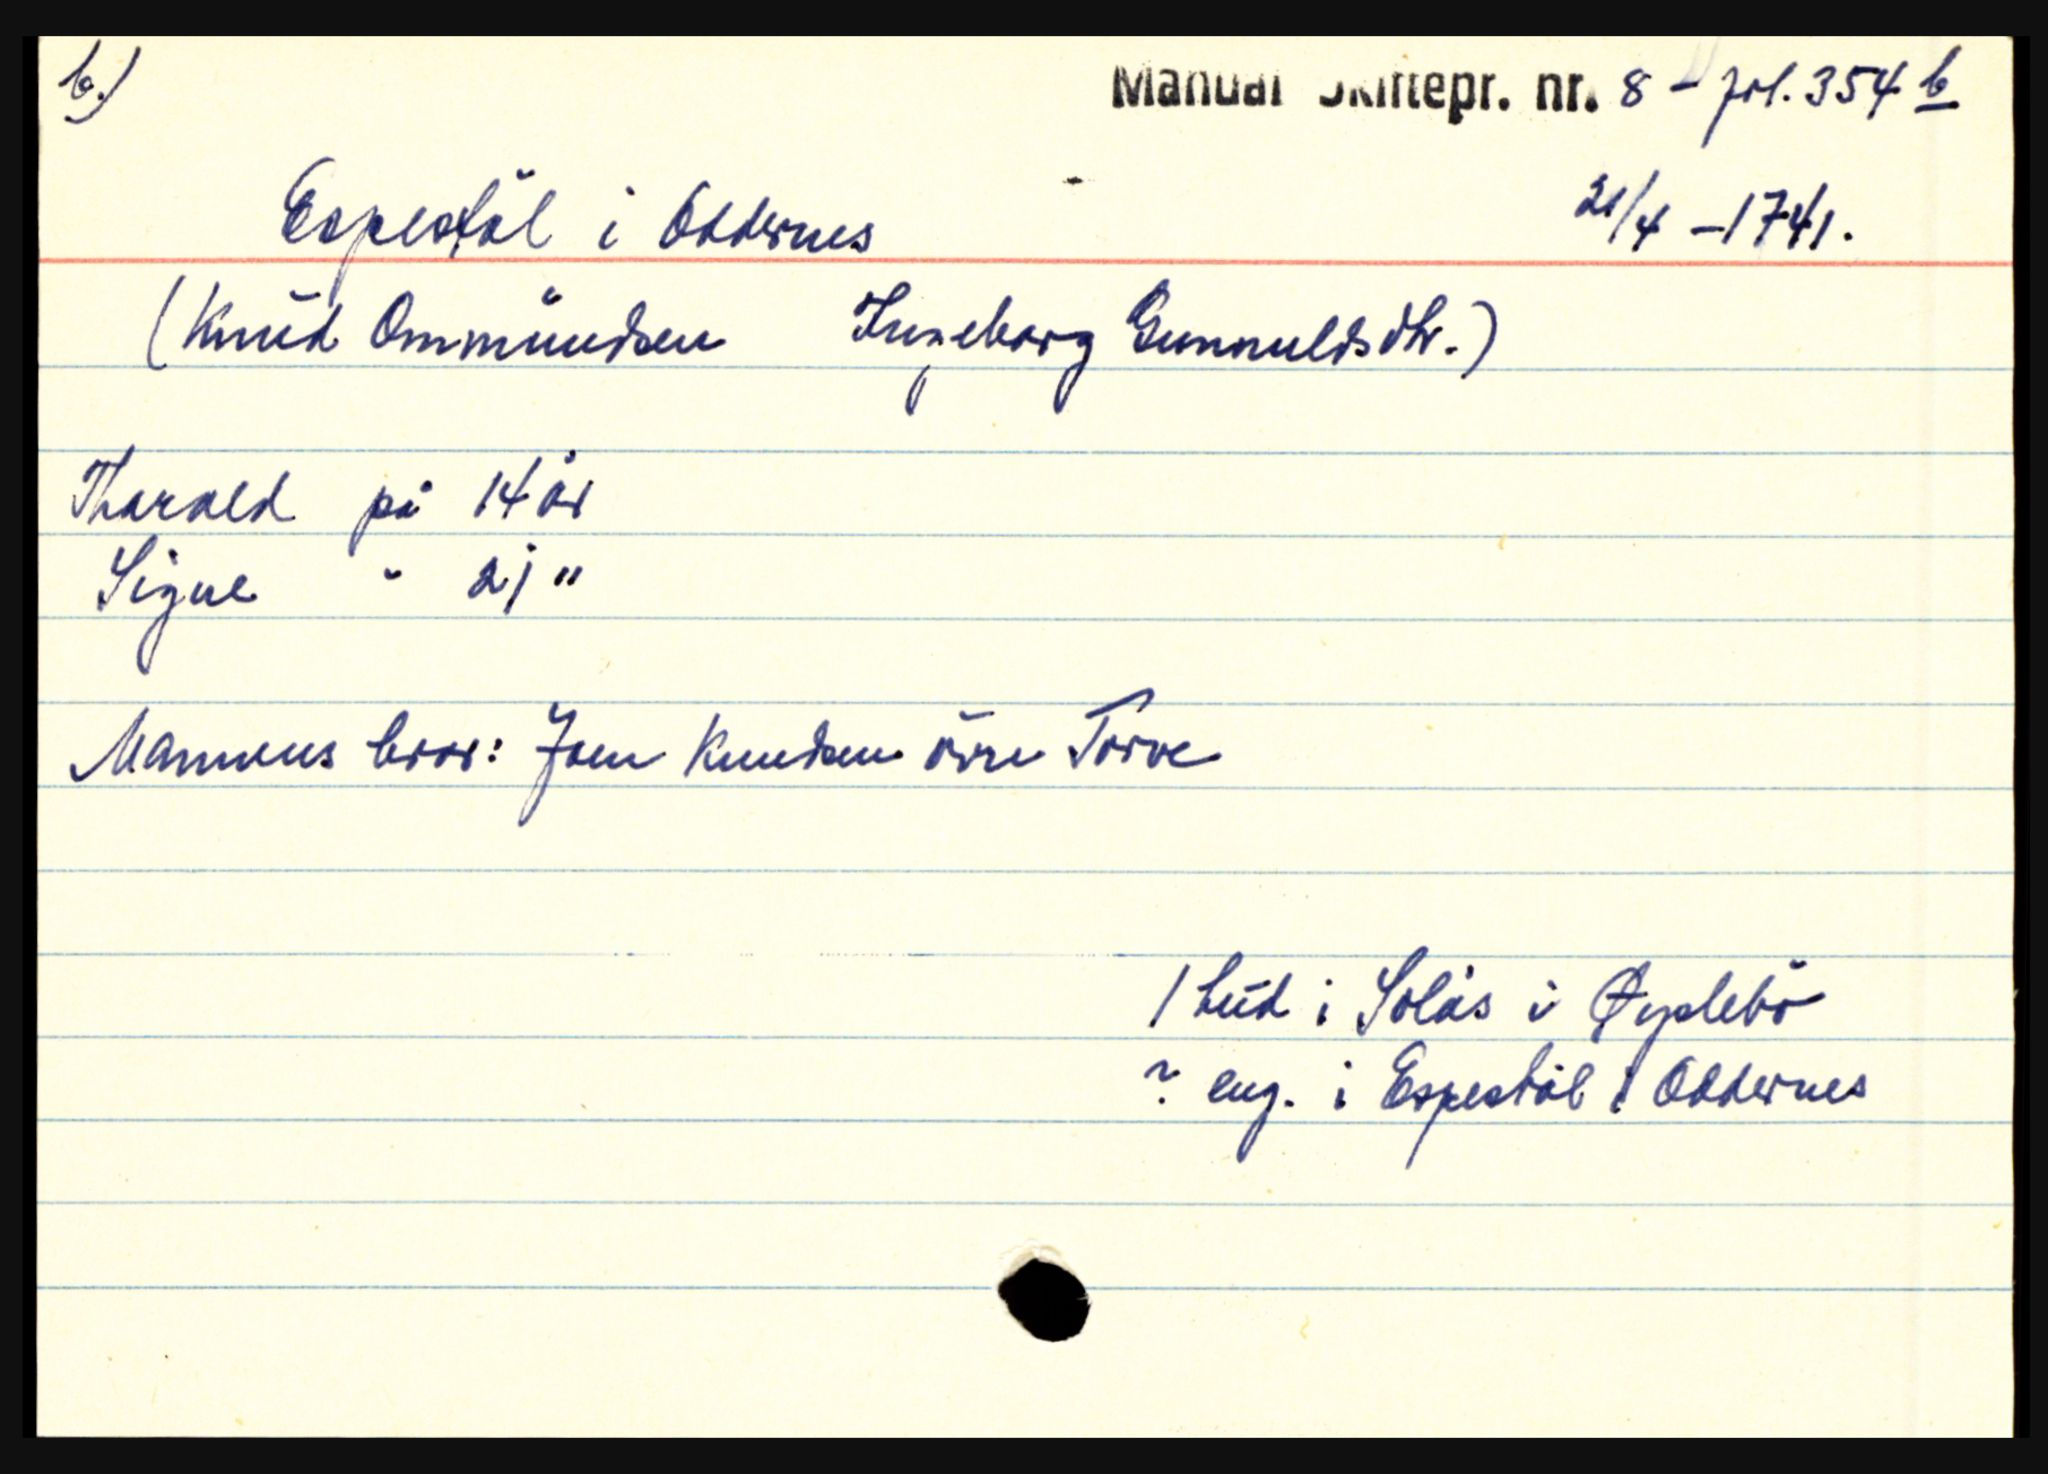 b.)
Manual Skiftepr. nr. 8 - fol. 354 b
Espestøl i Oddernes 21/4 - 1741.
(Knud Ommundsen Ingeborg Gunnuldsdtr.)
Tharald på 14 år
Signe " 21 "
Mannens bror: Joen Knudsen övre Torve
1 hud i Solås i Øyslebö
? eng. i Espestøl i Oddernes